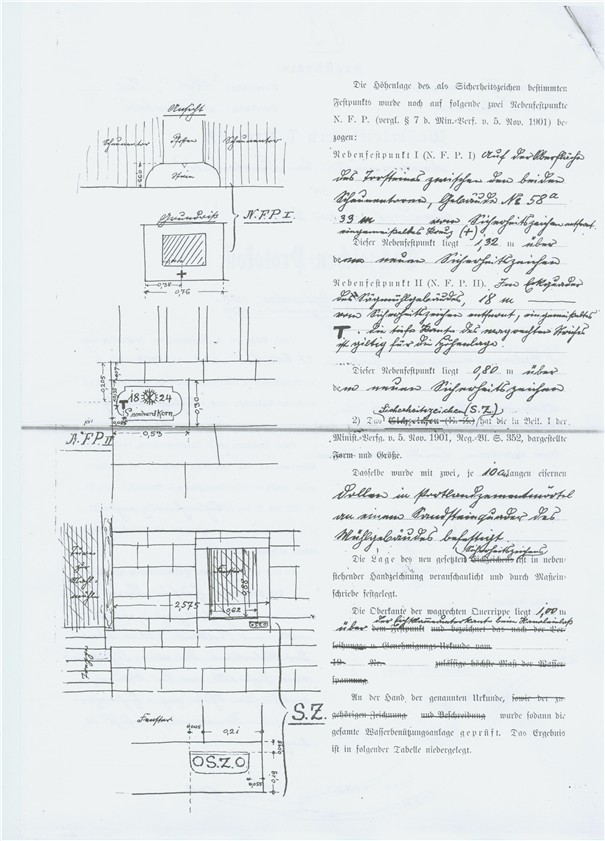 Ansicht
Scheunentor
Pfosten
Scheunentor
Stein
N.F.P I.
Grundriß
0,38
0,76
0,205
18 24
Leonhard Korn
0,30
0,53
N.F.P. II
Fenster
0,88
2,575
0,62
Treppe
S.Z.
Fenster
0,21
OS.Z.O
Die Höhenlage des als Sicherheitszeichen bestimmten
Festpunkts wurde noch auf folgende zwei Nebenfestpunkte
N. F. P. (vergl. § 7 d. Min.-Verf. v. 5. Nov. 1901) be-
zogen:
Nebenfestpunkt I (N. F. P. I) Auf der Oberfläche
des Torsteines zwischen den beiden
Scheunentoren, Gebäude No 58a
33 m vom Sicherheitszeichen entfernt.
eingemeißeltes Kreuz (+)
Dieser Nebenfestpunkt liegt 1,32 m über
dem neuen Sicherheitszeichen
Nebenfestpunkt II (N. F. P. II). Im Eckquader
des Sägmühlgebäudes, 18 m
vom Sicherheitszeichen entfernt, eingemeißeltes
T. die tiefe Kante des wagrechten Striches
ist giltig für die Höhenlage.
Dieser Nebenfestpunkt liegt 0,80 m über
dem neuen Sicherheitszeichen
Sicherheitszeichen (S.Z.)
2) Das hat die in Beil. I der
Minist.-Verfg. v. 5. Nov. 1901, Reg.-Bl. S. 352, dargestellte
Form und Größe.
Dasselbe wurde mit zwei, je 10 cm langen eisernen
Dollen in Portlandzementmörtel
an einem Sandsteinquader des
Mühlgebäudes befestigt
Sicherheitszeichens
Die Lage des neu gesetzten Eichzeichens ist in neben-
stehender Handzeichnung veranschaulicht und durch Maßein-
schriebe festgelegt.
Die Oberkante der wagrechten Querrippe liegt 1,00 m
der Lichtkammerunterkante beim Kanaleinlaß
über dem Festpunkt und bezeichnet das nach der Ver-
leihungs- u. Genehmigungs-Urkunde vom
19 Nr. zulässige höchste Maß der Wasser-
spannung.
An der Hand der genannten Urkunde, sowie der zu-
gehörigen Zeichnung und Beschreibung wurde sodann die
gesamte Wasserbenützungsanlage geprüft. Das Ergebnis
ist in folgender Tabelle niedergelegt.